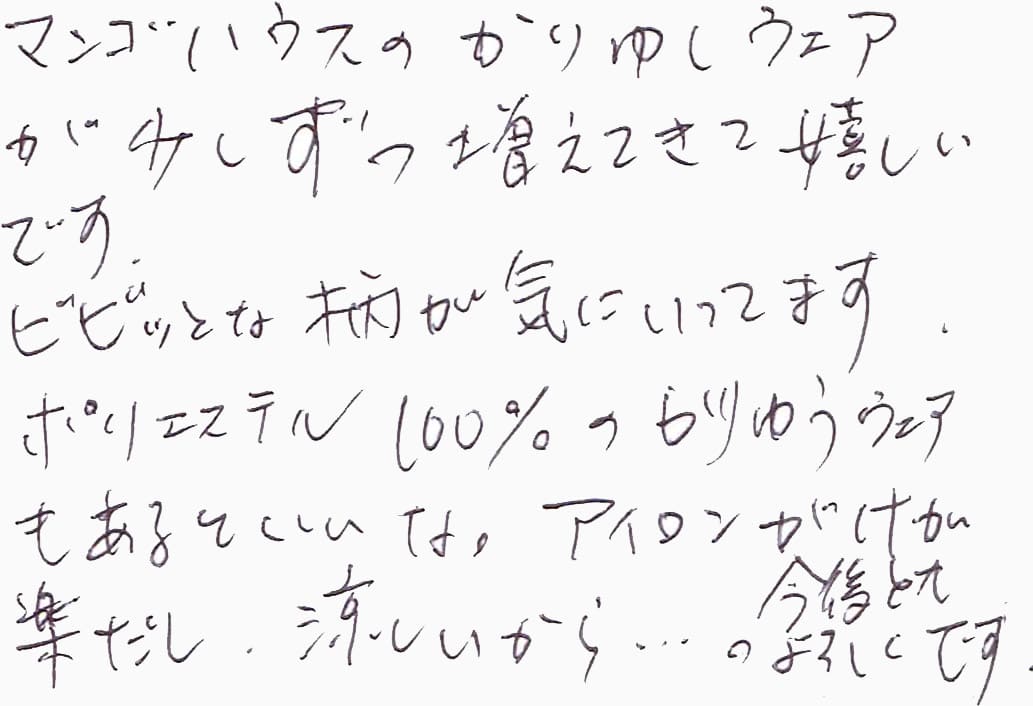 マンゴハウスの かりゆしウェア
が少しずつ増えてきて嬉しい
です.
ビビッとな柄が気にいってます.
ポリエステル100%のかりゆうウェア
もあるといいな。アイロンがけが
楽だし.涼しいから…
今後とも
よろしくです.